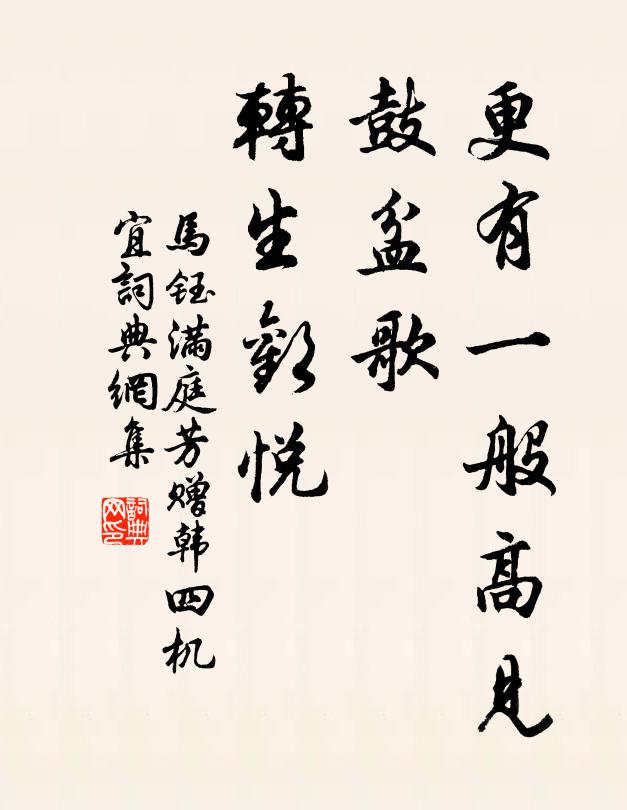 更有一般高見
鼓盆歌
轉生歡悅
馬鈺滿庭芳赠韩四机
宜詞典網集
詞典网印